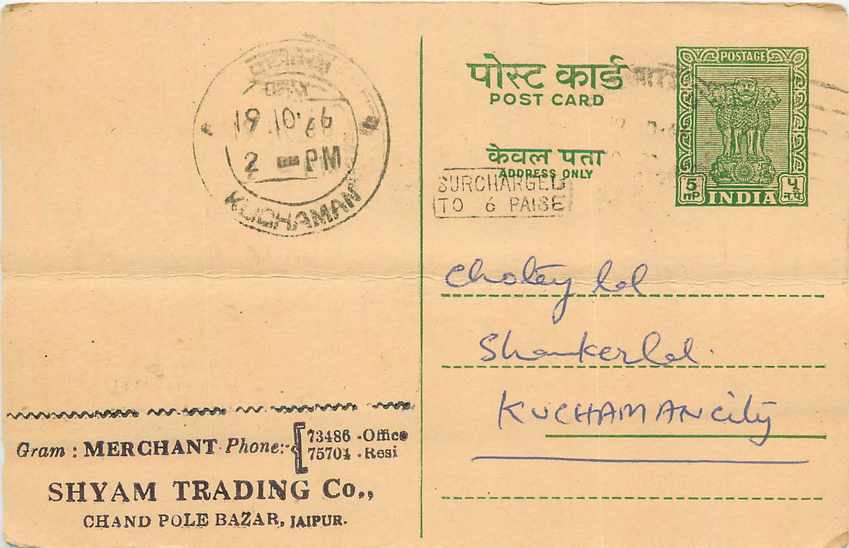 19.10.66
2 - PM
KUCHAMAN
Gram : MERCHANT Phone:- 73486 - Office
75704 - Resi
SHYAM TRADING Co.,
CHAND POLE BAZAR, JAIPUR.
पोस्ट कार्ड
POST CARD
केवल पता
ADDRESS ONLY
SURCHARGED
TO 6 PAISE
POSTAGE
5 nP INDIA ५ न.पै.
Chotey lal
Shankerlal.
KUCHAMANCity